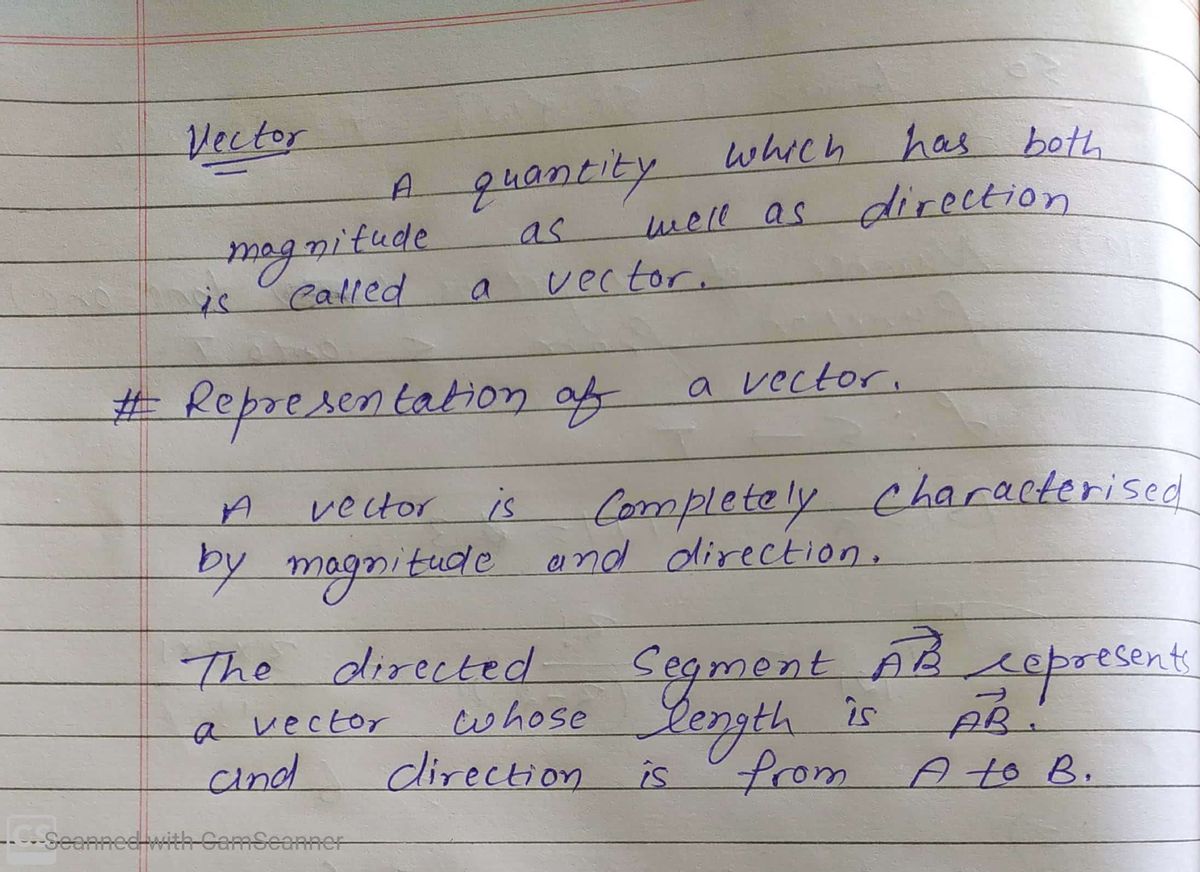 Vector
A quantity which has both
magnitude as well as direction
is called a vector.
# Representation of a vector.
A vector is Completely characterised
by magnitude and direction.
The directed Segment \overrightarrow{AB} represents
a vector whose length is \overrightarrow{AB}.
and direction is from A to B.
CS Scanned with CamScanner